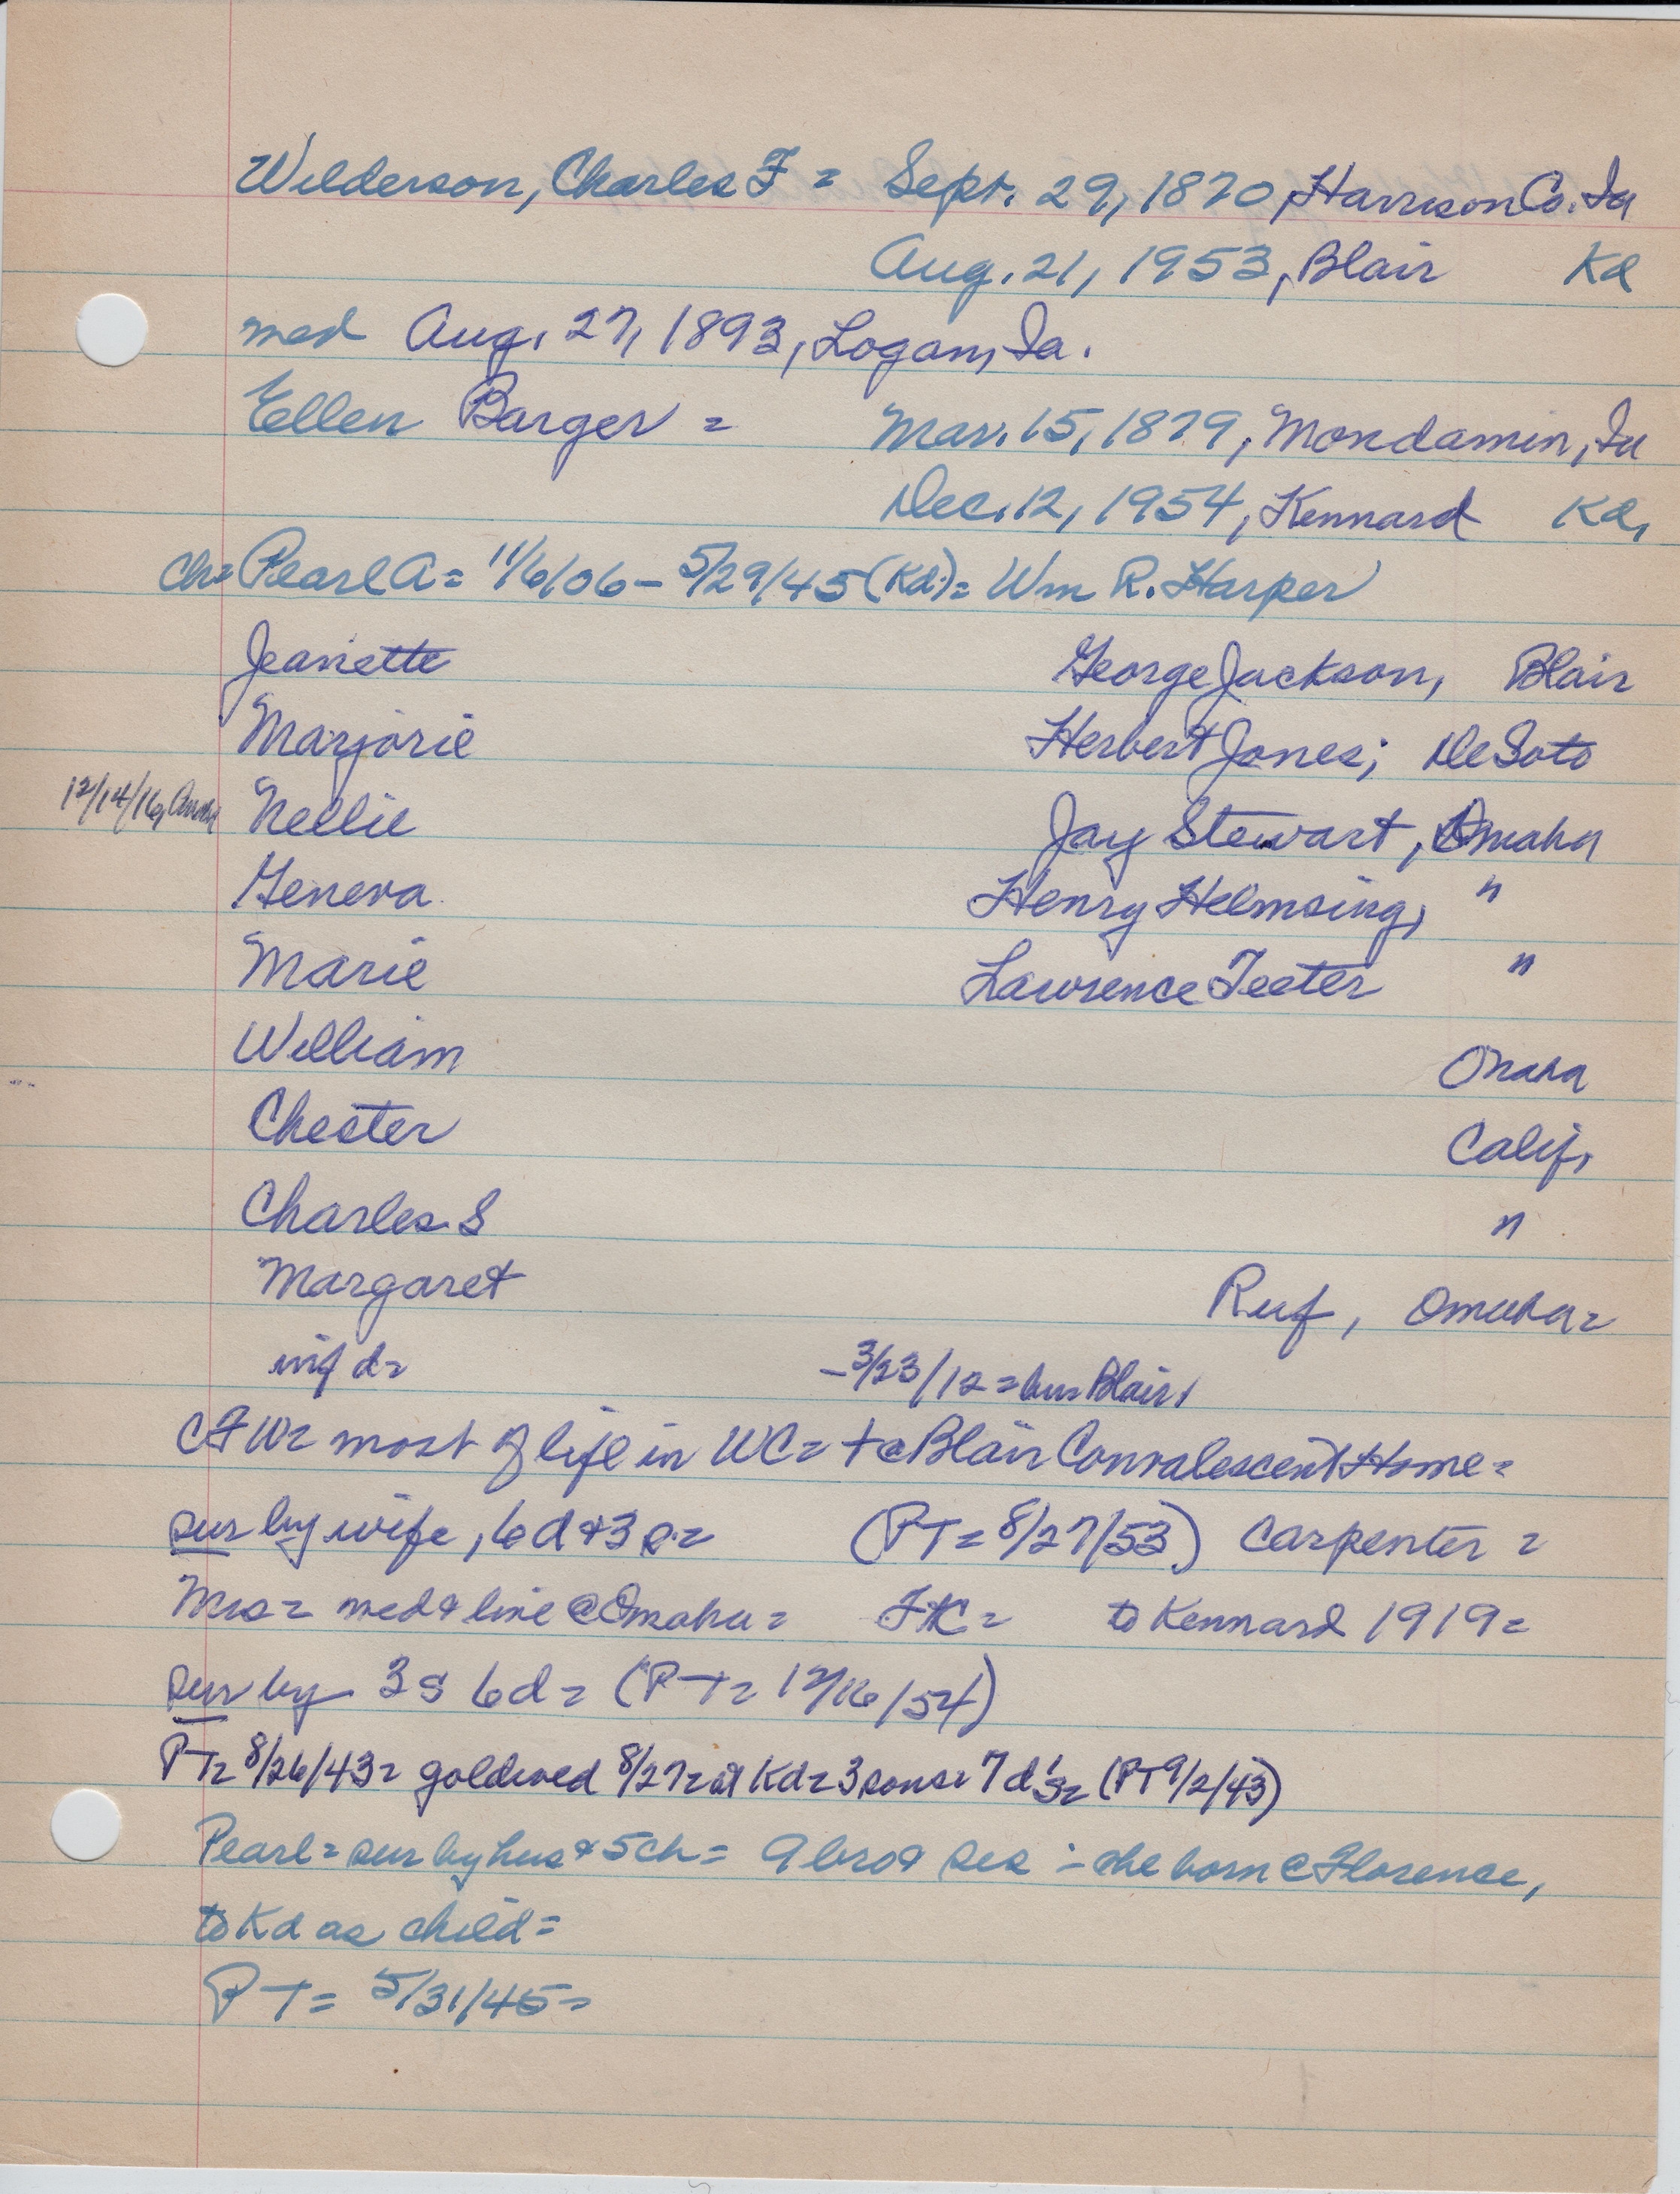 Wilderson, Charles F = Sept. 29, 1870, Harrison Co. Ia
Aug. 21, 1953, Blair Kd
med Aug. 27, 1893, Logan, Ia.
Ellen Barger = Mar. 15, 1879, Mondamin, Ia
Dec. 12, 1954, Kennard Kd,
ch = Pearl A = 11/6/06 - 5/29/45 (Kd) = Wm R. Harper
Jeanette George Jackson, Blair
Marjorie Herbert Jones; DeSoto
12/14/16, Nellie Jay Stewart, Omaha
Geneva Henry Helmsing, "
Marie Lawrence Teeter "
William Omaha
Chester Calif,
Charles S "
Margaret Ruf, Omaha =
inf d = - 3/23/12 = bur Blair,
CFW = most of life in WC = + @ Blair Convalescent Home =
sur by wife, 6 d & 3 s = (PT = 8/27/53) Carpenter =
Mrs = med & live @ Omaha = to Kennard 1919 =
sur by 3 s 6 d = (PT = 12/16/54)
PT = 8/26/43 = gold wed 8/27 = at Kd = 3 sons = 7 d's = (PT 9/2/43)
Pearl = sur by hus & 5 ch = 9 bro & sis - she born @ Florence,
to Kd as child =
PT = 5/31/45 =